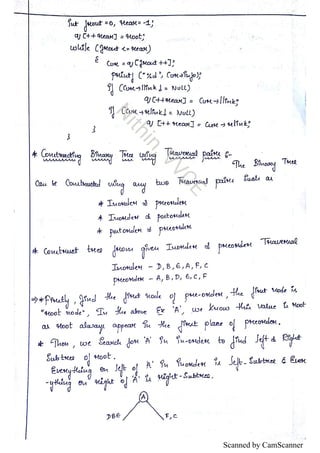 int front =0, rear=-1;
q[++rear] = root;
while (front <= rear)
{ Cur = q[front++];
printf ("%d", Cur→info);
if (Cur→llink != NULL)
q[++rear] = Cur→llink;
if (Cur→rlink != NULL)
q[++rear] = Cur→rlink;
}
}
* Constructing Binary Tree using Traversal pairs :-
The Binary Tree
Can be Constructed using any two Traversal pairs such as
* Inorder & preorder
* Inorder & postorder
* postorder & preorder
* Construct tree from given Inorder & preorder Traversal
Inorder - D, B, E, A, F, C
preorder - A, B, D, E, C, F
⇒* Firstly, find the first node of pre-order, the first node is
"root node", In the above Ex 'A', we know this value is root
as root always appear in the first place of preorder.
* Then, we Search for 'A' in in-order to find left & Right
Subtree of root.
Everything on left of 'A' in inorder is left-Subtree & Ever
-ything on right of 'A' is right-Subtree.
A
DBE F, C
Scanned by CamScanner